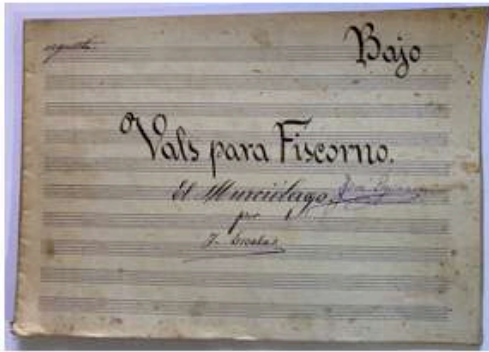 Bajo
Vals para Fiscorno.
El Murciélago
por
J. Escalas